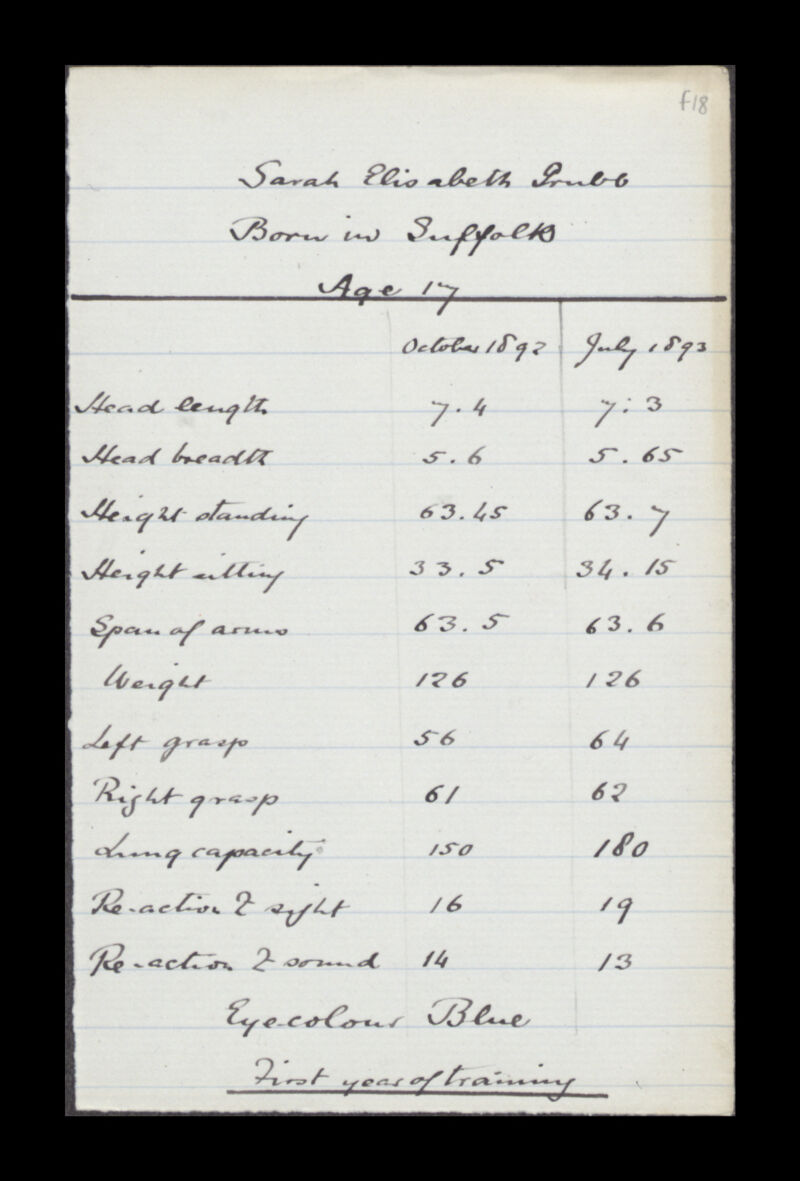 f18
Sarah Elisabeth Grubb
Born in Suffolk
Age 17
October 1892 July 1893
Head length 7.4 7.3
Head breadth 5.6 5.65
Height standing 63.45 63.7
Height sitting 33.5 34.15
Span of arms 63.5 63.6
Weight 126 126
Left grasp 56 64
Right grasp 61 62
Lung capacity 150 180
Re-action to sight 16 19
Re-action to sound 14 13
Eye colour Blue
First year of training